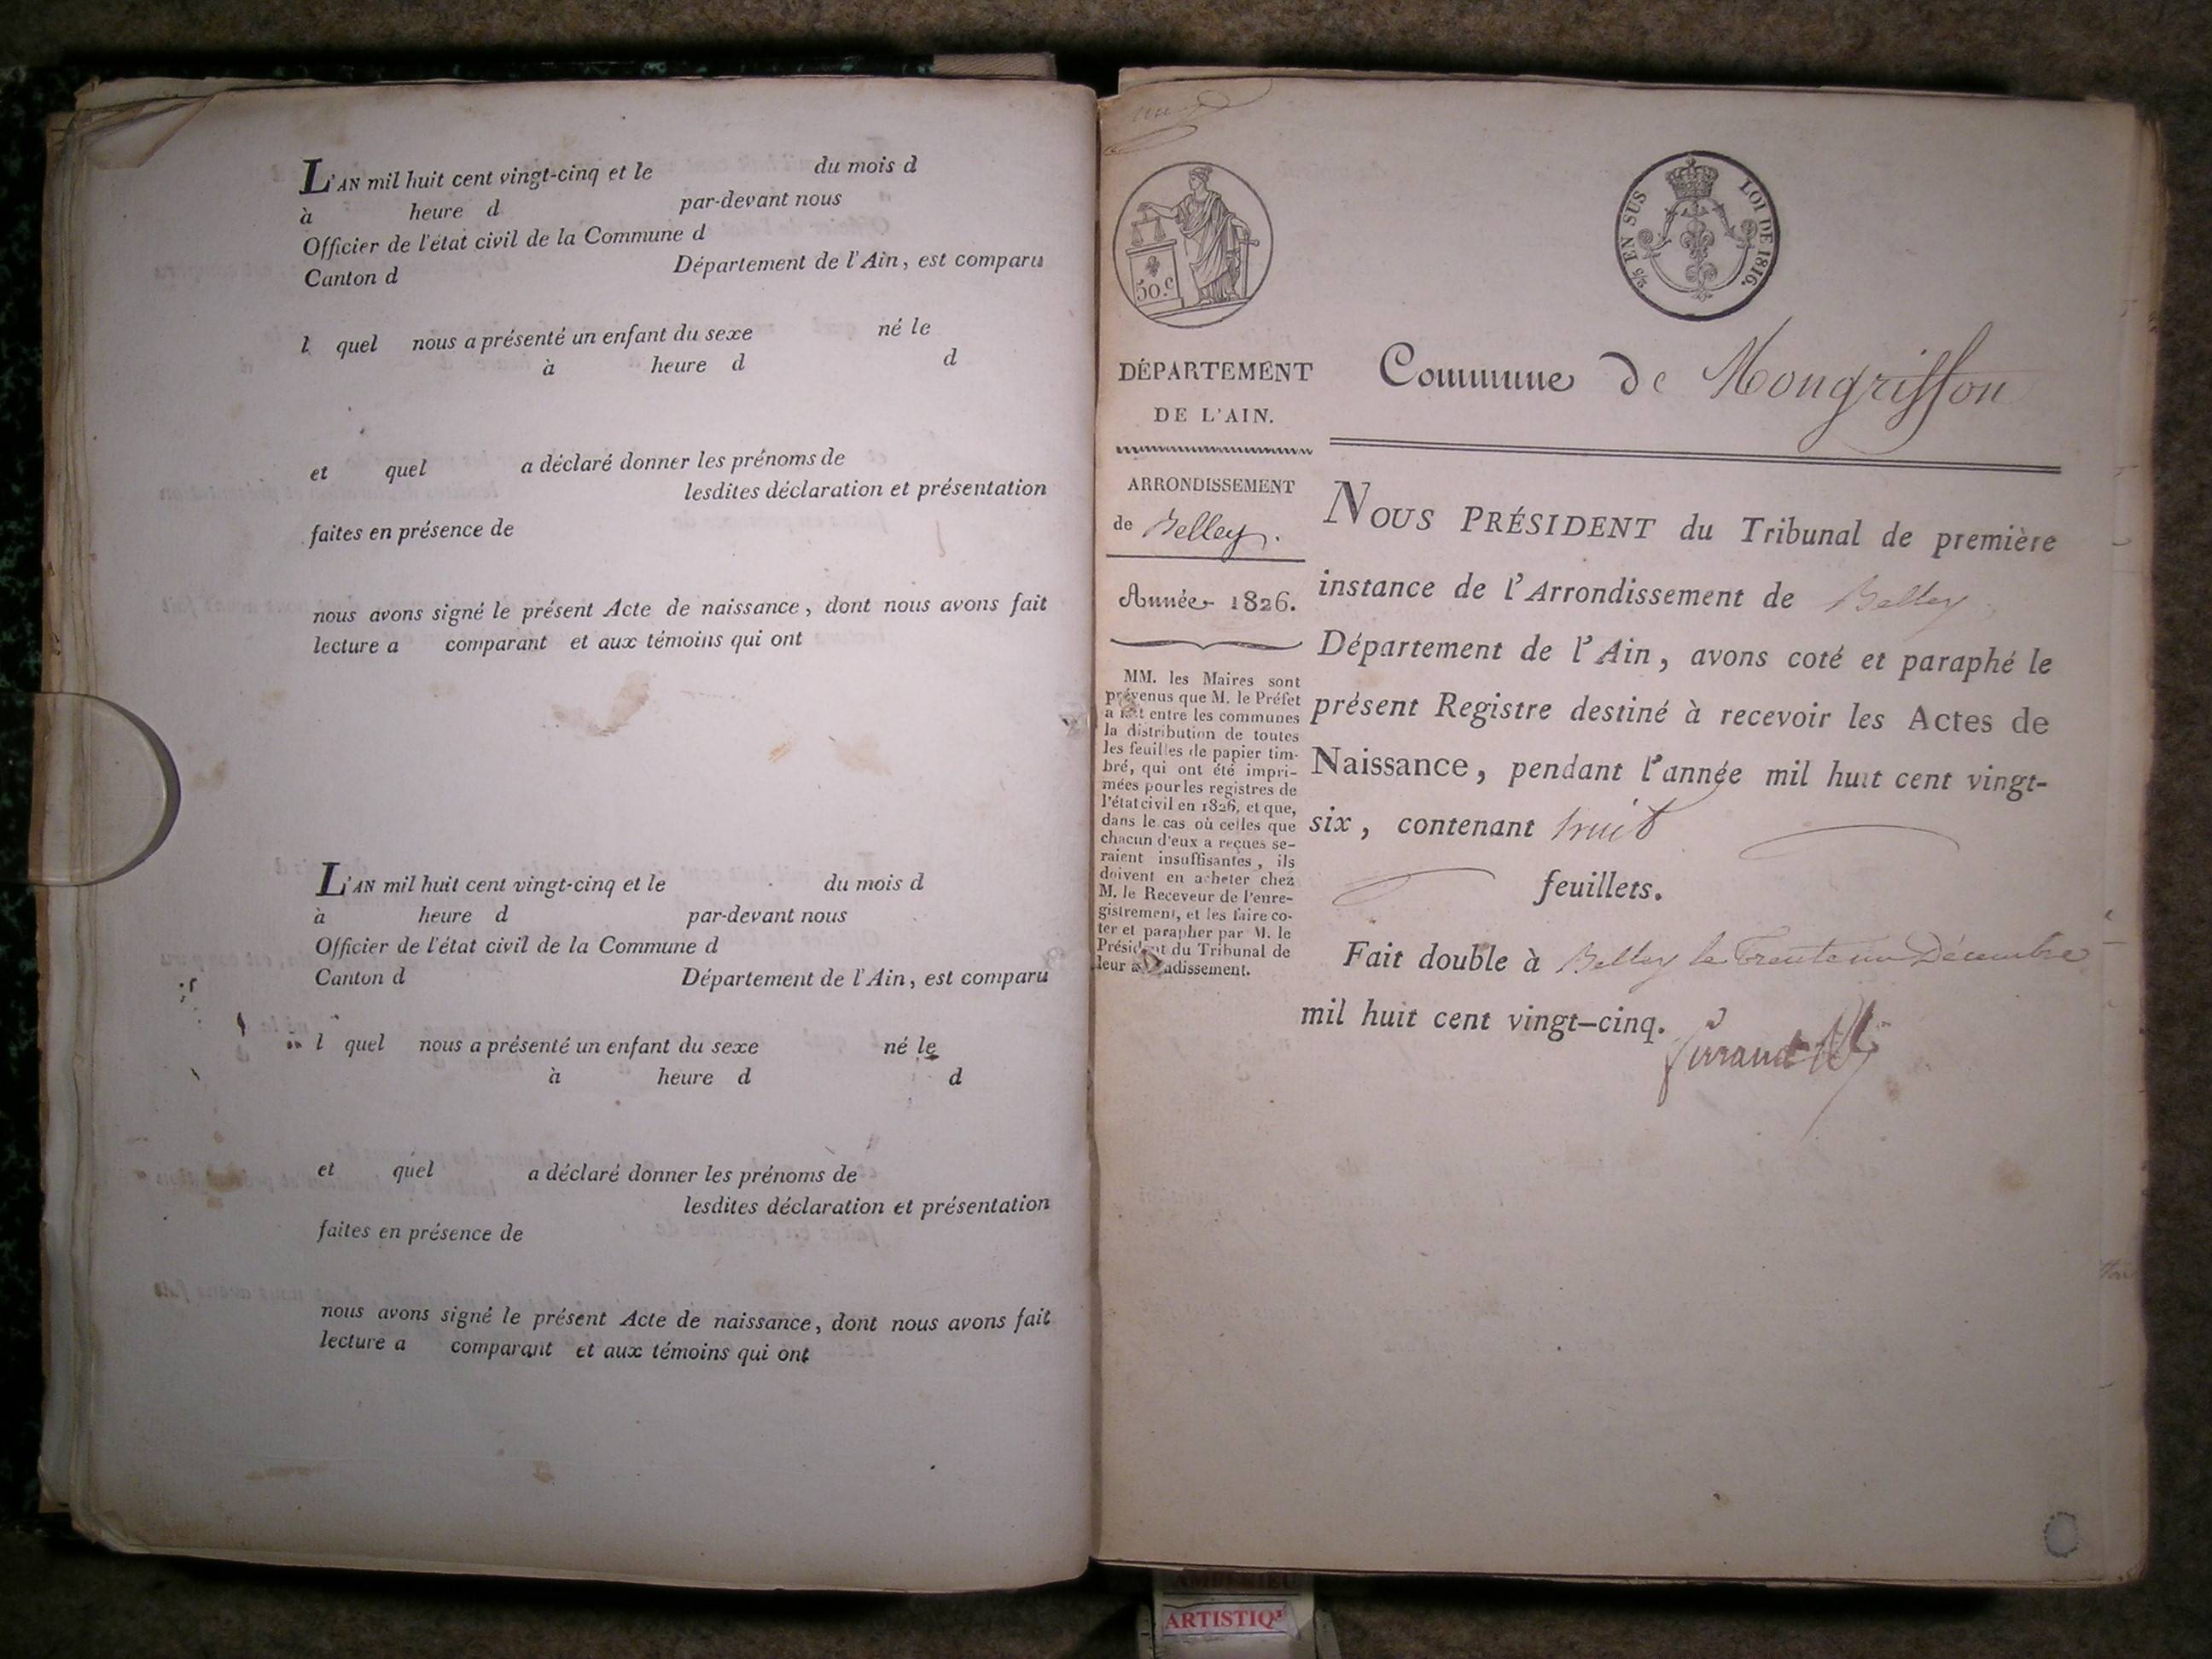 L'AN mil huit cent vingt-cinq et le du mois d
à heure d par-devant nous
Officier de l'état civil de la Commune d
Canton d Département de l'Ain, est comparu
l quel nous a présenté un enfant du sexe né le
à heure d d
et quel a déclaré donner les prénoms de
lesdites déclaration et présentation
faites en présence de
nous avons signé le présent Acte de naissance, dont nous avons fait
lecture a comparant et aux témoins qui ont
L'AN mil huit cent vingt-cinq et le du mois d
à heure d par-devant nous
Officier de l'état civil de la Commune d
Canton d Département de l'Ain, est comparu
l quel nous a présenté un enfant du sexe né le
à heure d d
et quel a déclaré donner les prénoms de
lesdites déclaration et présentation
faites en présence de
nous avons signé le présent Acte de naissance, dont nous avons fait
lecture a comparant et aux témoins qui ont
50.c
EN SUS LOI DE 1816.
DÉPARTEMENT
DE L'AIN.
ARRONDISSEMENT
de Belley.
Année 1826.
MM. les Maires sont
prévenus que M. le Préfet
a fait entre les communes
la distribution de toutes
les feuilles de papier tim-
bré, qui ont été impri-
mées pour les registres de
l'état civil en 1826, et que,
dans le cas où celles que
chacun d'eux a reçues se-
raient insuffisantes, ils
doivent en acheter chez
M. le Receveur de l'enre-
gistrement, et les faire co-
ter et parapher par M. le
Président du Tribunal de
leur adissement.
Commune de Mongriffon
NOUS PRÉSIDENT du Tribunal de première
instance de l'Arrondissement de Belley
Département de l'Ain, avons coté et paraphé le
présent Registre destiné à recevoir les Actes de
Naissance, pendant l'année mil huit cent vingt-
six, contenant huit
feuillets.
Fait double à Belley le Trente un Décembre
mil huit cent vingt-cinq.
ARTISTIQ